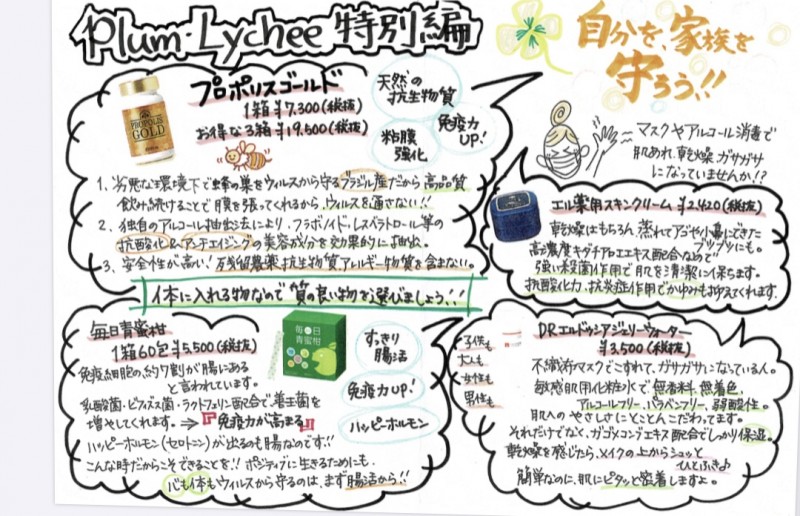 Plum・Lychee 特別編
自分を、家族を
守ろう!!
プロポリスゴールド
1箱 ¥7,300(税抜)
お得な3箱 ¥19,500(税抜)
PROPOLIS
GOLD
天然の
抗生物質
免疫力
UP!
粘膜
強化
1. 劣悪な環境下で蜂の巣をウィルスから守るブラジル産だから高品質
飲み続けることで膜を張ってくれるから、ウィルスを通さない!!
2. 独自のアルコール抽出法により、フラボノイド・レスベラトロール等の
抗酸化&アンチエイジングの美容成分を効果的に抽出。
3. 安全性が高い! 残留農薬、抗生物質、アレルギー物質を含まない。
マスクやアルコール消毒で
肌あれ、乾燥、ガサガサ
になっていませんか!?
エル薬用スキンクリーム ¥2,420(税抜)
乾燥はもちろん、蒸れてアゴや小鼻にできた
プツプツにも。
高濃度キダチアロエエキス配合なので
強い殺菌作用で肌を清潔に保ちます。
抗酸化力、抗炎症作用でかゆみも抑えてくれます。
体に入れる物なので質の良い物を選びましょう!!
毎日青蜜柑
1箱60包 ¥5,500(税抜)
毎日
青蜜柑
免疫細胞の約7割が腸にある
と言われています。
乳酸菌・ビフズス菌・ラクトフェリン配合で、善玉菌を
増やしてくれます。⇒『免疫力が高まる』
ハッピーホルモン(セロトニン)が出るのも腸なのです!!
こんな時だからこそできることを!! ポジティブに生きるためにも、
心も体もウィルスから守るのは、まず腸活から!!
すっきり
腸活
免疫力UP!
ハッピーホルモン
子供も
大人も
女性も
男性も
DR.エルドゥシアジェリーウォーター
¥3,500(税抜)
不織布マスクでこすれて、ガサガサになっている人。
敏感肌用化粧水で、無香料、無着色、
アルコールフリー、パラベンフリー、弱酸性。
肌へのやさしさにとことんこだわってます。
それだけでなく、ガゴメコンブエキス配合でしっかり保湿。
乾燥を感じたら、メイクの上からシュッと
ひとふき♪
簡単なのに、肌にピタッと密着しますよ。